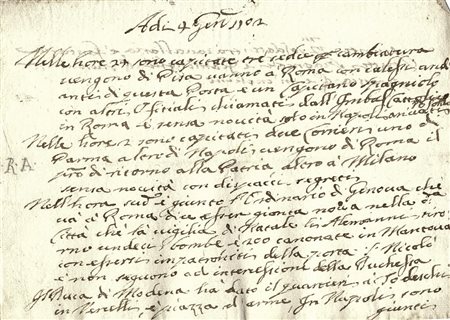 Adi 4 Gen. 1702
Nelle hore 21 sono capitate tre sedie
vengono di Pisa vanno a Roma con
di questa Posta e un Capitano Spagniolo
con altri Officiali chiamati dall'
in Roma e senza novità solo in Napoli
Nelle hore 2 sono capitati due Corrieri uno di
Parma altro di Napoli vengono di Roma il
p.o di ritorno alla Patria altro a Milano
senza novità con dispacci segreti
Nell'hora sud.a è giunto l'Ordinario di Genova che
va a Roma Dice esser gionta nova nella d.a
Città che la vigilia di Natale li Alemanni
bombe e 200 canonate in Mantova
della porta S. Nicolò
e non seguono ad intercessione della Duchessa
Il Duca di Modena ha dato il quartiere a Todeschi
in e piazza d'arme, In Napoli sono
giunti
RA